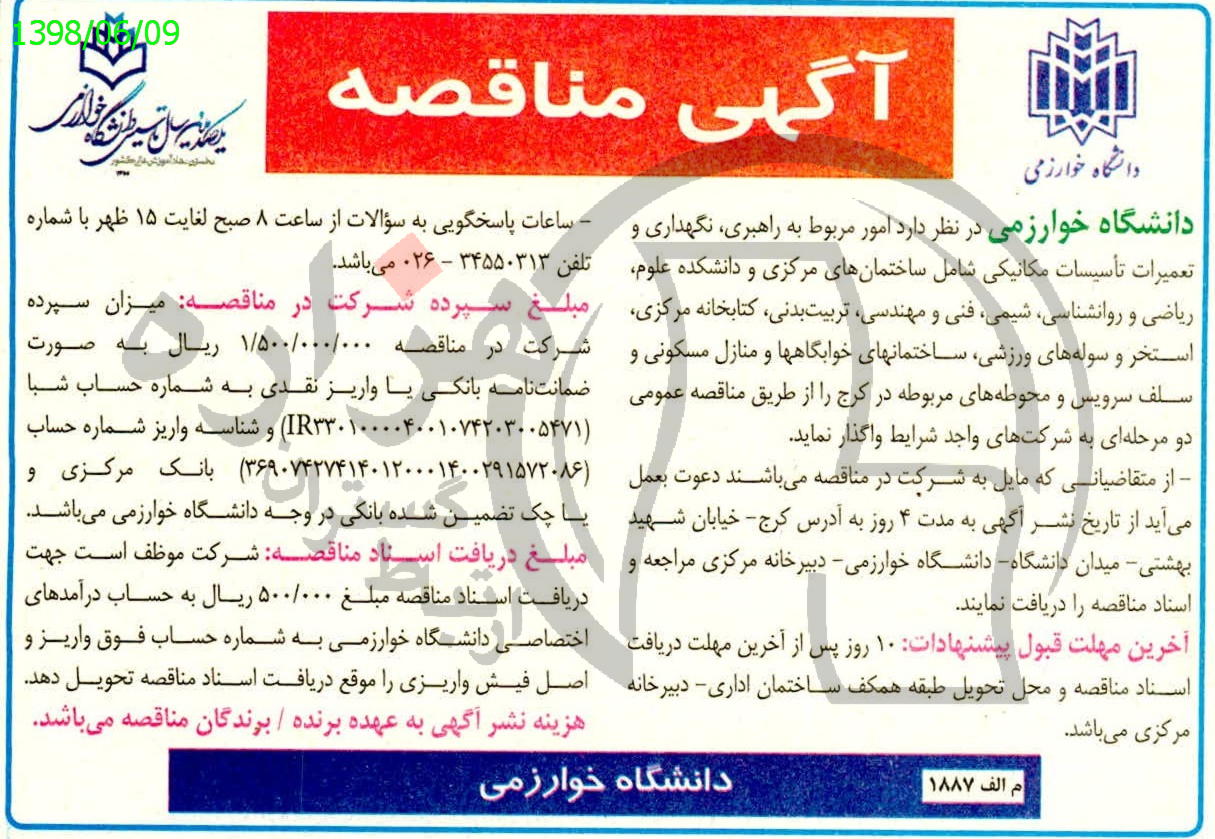 1398/06/09
آگهی مناقصه
دانشگاه خوارزمی
یکصدمین سال تاسیس دانشگاه خوارزمی
نخستین نهاد آموزش عالی کشور
دانشگاه خوارزمی در نظر دارد امور مربوط به راهبری، نگهداری و
تعمیرات تأسیسات مکانیکی شامل ساختمان‌های مرکزی و دانشکده علوم،
ریاضی و روانشناسی، شیمی، فنی و مهندسی، تربیت‌بدنی، کتابخانه مرکزی،
استخر و سوله‌های ورزشی، ساختمانهای خوابگاهها و منازل مسکونی و
سلف سرویس و محوطه‌های مربوطه در کرج را از طریق مناقصه عمومی
دو مرحله‌ای به شرکت‌های واجد شرایط واگذار نماید.
- از متقاضیانی که مایل به شرکت در مناقصه می‌باشند دعوت بعمل
می‌آید از تاریخ نشر آگهی به مدت ۴ روز به آدرس کرج- خیابان شهید
بهشتی- میدان دانشگاه- دانشگاه خوارزمی- دبیرخانه مرکزی مراجعه و
اسناد مناقصه را دریافت نمایند.
آخرین مهلت قبول پیشنهادات: ۱۰ روز پس از آخرین مهلت دریافت
اسناد مناقصه و محل تحویل طبقه همکف ساختمان اداری- دبیرخانه
مرکزی می‌باشد.
- ساعات پاسخگویی به سؤالات از ساعت ۸ صبح لغایت ۱۵ ظهر با شماره
تلفن ۳۴۵۵۰۳۱۳ - ۰۲۶ می‌باشد.
مبلغ سپرده شرکت در مناقصه: میزان سپرده
شرکت در مناقصه ۱/۵۰۰/۰۰۰/۰۰۰ ریال به صورت
ضمانت‌نامه بانکی یا واریز نقدی به شماره حساب شبا
(IR۳۳۰۱۰۰۰۰۴۰۰۱۰۷۴۲۰۳۰۰۵۴۷۱) و شناسه واریز شماره حساب
(۳۶۹۰۷۴۲۷۴۱۴۰۱۲۰۰۰۱۴۰۰۲۹۱۵۷۲۰۸۶) بانک مرکزی و
یا چک تضمین شده بانکی در وجه دانشگاه خوارزمی می‌باشد.
مبلغ دریافت اسناد مناقصه: شرکت موظف است جهت
دریافت اسناد مناقصه مبلغ ۵۰۰/۰۰۰ ریال به حساب درآمدهای
اختصاصی دانشگاه خوارزمی به شماره حساب فوق واریز و
اصل فیش واریزی را موقع دریافت اسناد مناقصه تحویل دهد.
هزینه نشر آگهی به عهده برنده / برندگان مناقصه می‌باشد.
م الف ۱۸۸۷
دانشگاه خوارزمی
هزاره
ارتباط گستران